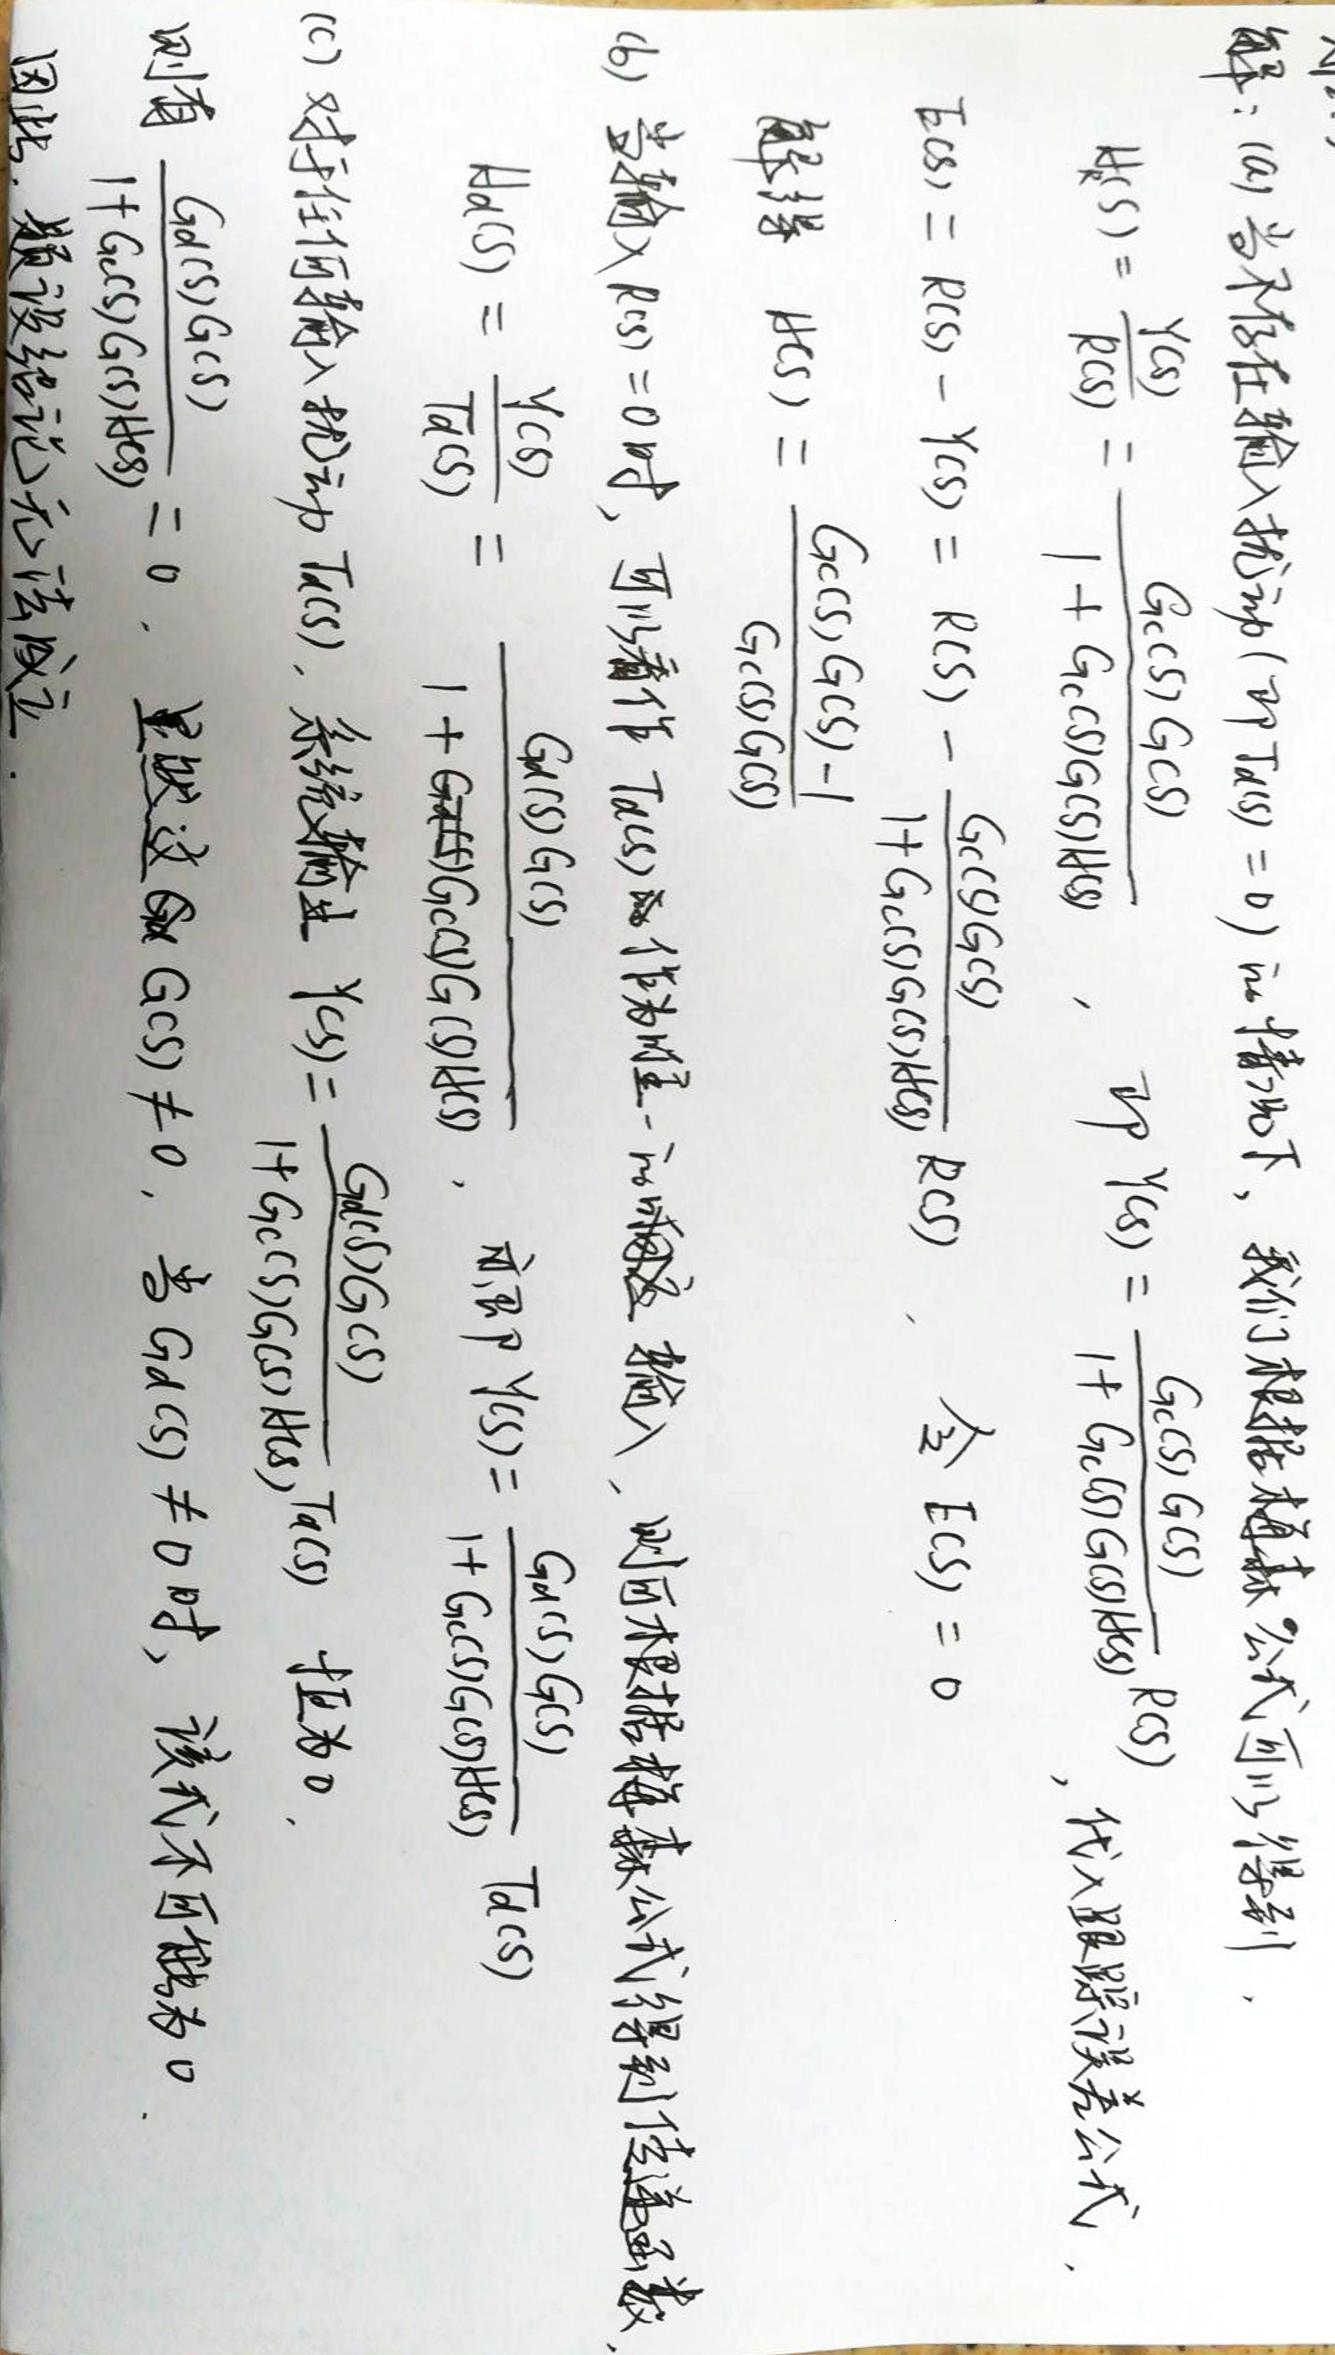 解：(a) 当不存在输入扰动(即Td(s)=0)的情况下，我们根据梅森公式可以得到，
H_R(S) = Y(S)/R(S) = Gc(S)G(S)/(1+Gc(S)G(S)H(S)) ，即 Y(S) = Gc(S)G(S)/(1+Gc(S)G(S)H(S)) R(S)，代入跟踪误差公式，
E(S) = R(S) - Y(S) = R(S) - Gc(S)G(S)/(1+Gc(S)G(S)H(S)) R(S) ，令 E(S) = 0
解得 H(S) = (Gc(S)G(S)-1)/(Gc(S)G(S))
(b) 当输入R(s)=0时，可以看作 Td(s) 作为唯一的响应输入，则可根据梅森公式得到传递函数，
Hd(S) = Y(S)/Td(S) = Gd(S)G(S)/(1+Gc(S)G(S)H(S)) ，亦即 Y(S) = Gd(S)G(S)/(1+Gc(S)G(S)H(S)) Td(S)
(c) 对于任何输入扰动 Td(S)，系统输出 Y(S) = Gd(S)G(S)/(1+Gc(S)G(S)H(S)) Td(S) 恒为0，
则有 Gd(S)G(S)/(1+Gc(S)G(S)H(S)) = 0 . 显然这 G(S) ≠ 0，当 Gd(S) ≠ 0时，该式不可能为0．
因此，题设结论无法成立．